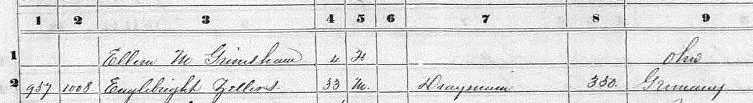 1 2 3 4 5 6 7 8 9
1 Ellen M Grimshaw 4 F Ohio
2 957 1008 33 M. Drayman 350. Germany